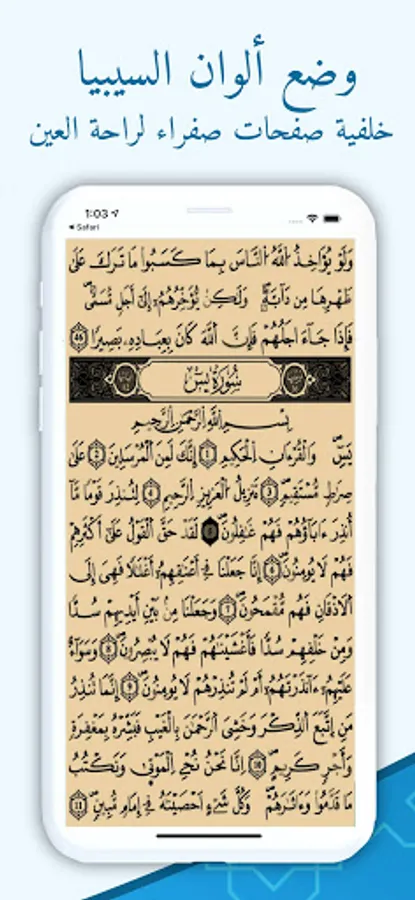 وضع ألوان السيبيا
خلفية صفحات صفراء لراحة العين
1:03
Safari
وَلَوْ يُؤَاخِذُ اللَّهُ النَّاسَ بِمَا كَسَبُوا مَا تَرَكَ عَلَىٰ
ظَهْرِهَا مِن دَآبَّةٍ وَلَٰكِنْ يُؤَخِّرُهُمْ إِلَىٰ أَجَلٍ مُّسَمًّى
فَإِذَا جَآءَ اجَلُهُمْ فَإِنَّ اللَّهَ كَانَ بِعِبَادِهِ بَصِيرًا 46
سُورَةُ يسٓ
بِسْمِ اللَّهِ الرَّحْمَٰنِ الرَّحِيمِ
يَسٓ وَالْقُرْءَانِ الْحَكِيمِ 1 إِنَّكَ لَمِنَ الْمُرْسَلِينَ 2 عَلَىٰ
صِرَاطٍ مُّسْتَقِيمٍ 3 تَنزِيلُ الْعَزِيزِ الرَّحِيمِ 4 لِتُنذِرَ قَوْمًا مَّآ
أُنذِرَ ءَابَآؤُهُمْ فَهُمْ غَٰفِلُونَ 5 لَقَدْ حَقَّ الْقَوْلُ عَلَىٰٓ أَكْثَرِهِمْ
فَهُمْ لَا يُومِنُونَ 6 إِنَّا جَعَلْنَا فِےٓ أَعْنَٰقِهِمُۥٓ أَغْلَٰلًا فَهِيَ إِلَى
الْأَذْقَانِ فَهُم مُّقْمَحُونَ 7 وَجَعَلْنَا مِنۢ بَيْنِ أَيْدِيهِمْ سُدًّا
وَمِنْ خَلْفِهِمْ سُدًّا فَأَغْشَيْنَٰهُمْ فَهُمْ لَا يُبْصِرُونَ 8 وَسَوَآءٌ
عَلَيْهِمُۥٓ ءَآنذَرْتَهُمُۥٓ أَمْ لَمْ تُنذِرْهُمْ لَا يُومِنُونَ 9 إِنَّمَا تُنذِرُ
مَنِ اتَّبَعَ الذِّكْرَ وَخَشِيَ الرَّحْمَٰنَ بِالْغَيْبِ فَبَشِّرْهُ بِمَغْفِرَةٍ
وَأَجْرٍ كَرِيمٍ 10 إِنَّا نَحْنُ نُحْيِ الْمَوْتَىٰ وَنَكْتُبُ
مَا قَدَّمُوا وَءَاثَٰرَهُمْ وَكُلَّ شَيْءٍ احْصَيْنَٰهُ فِےٓ إِمَامٍ مُّبِينٍ 11